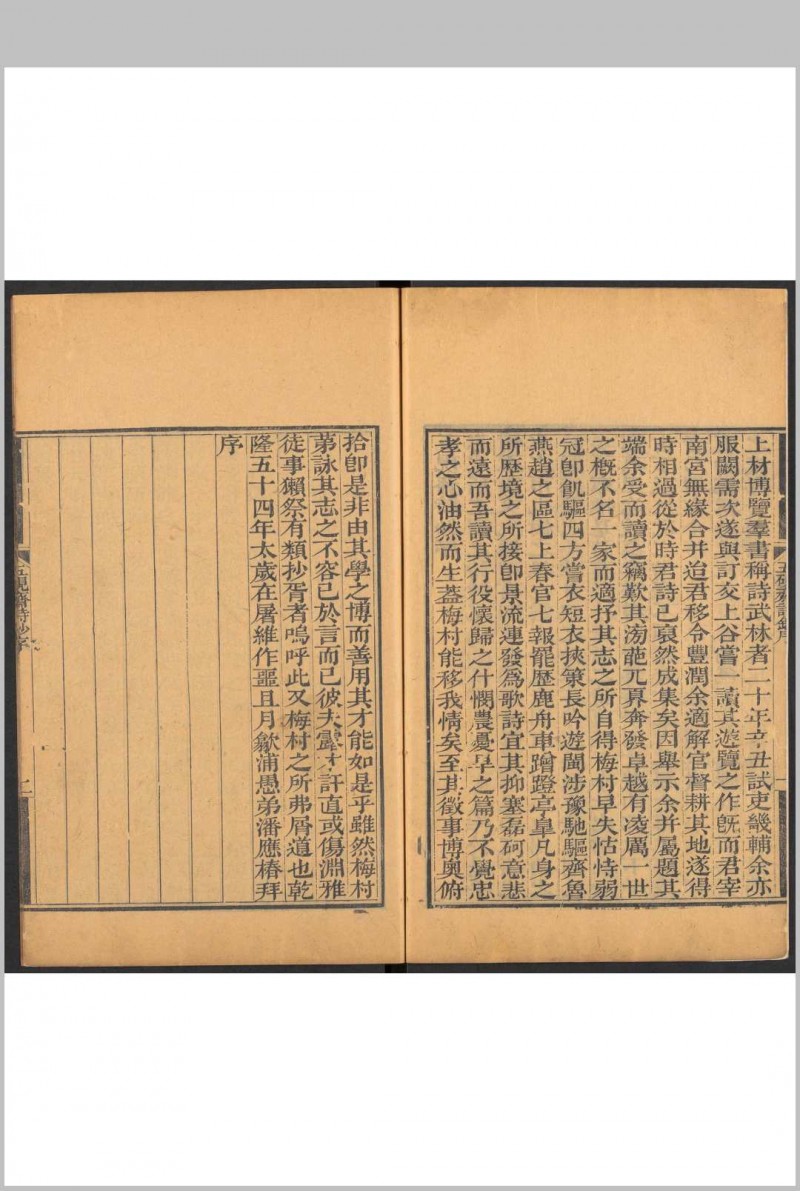 上材博覽羣書稱詩武林者二十年辛丑試吏畿輔余亦
服闋需次遂與訂交上谷嘗一讀其遊覽之作旣而君宰
南宮無緣合并迨君移令豐潤余適解官督耕其地遂得
時相過從於時君詩已裒然成集矣因舉示余并屬題其
端余受而讀之竊歎其滂葩亓奡奔發卓越有凌厲一世
之槪不名一家而適抒其志之所自得梅村早失怙恃弱
冠卽飢驅四方嘗衣短衣挾策長吟遊閩涉豫馳驅齊魯
燕趙之區七上春官七報罷歷鹿舟車蹭蹬亭皐凡身之
所歷境之所接卽景流連發爲歌詩宜其抑塞磊砢意悲
而遠而吾讀其行役懷歸之什憫農憂旱之篇乃不覺忠
孝之心油然而生葢梅村能移我情矣至其徵事博奧俯
五硯齋詩鈔序
一
拾卽是非由其學之博而善用其才能如是乎雖然梅村
第詠其志之不容已於言而已彼夫露才訐直或傷淵雅
徒事獺祭有類抄胥者嗚呼此又梅村之所弗屑道也乾
隆五十四年太歲在屠維作噩且月歙浦愚弟潘應椿拜
序
五硯齋詩鈔序
二